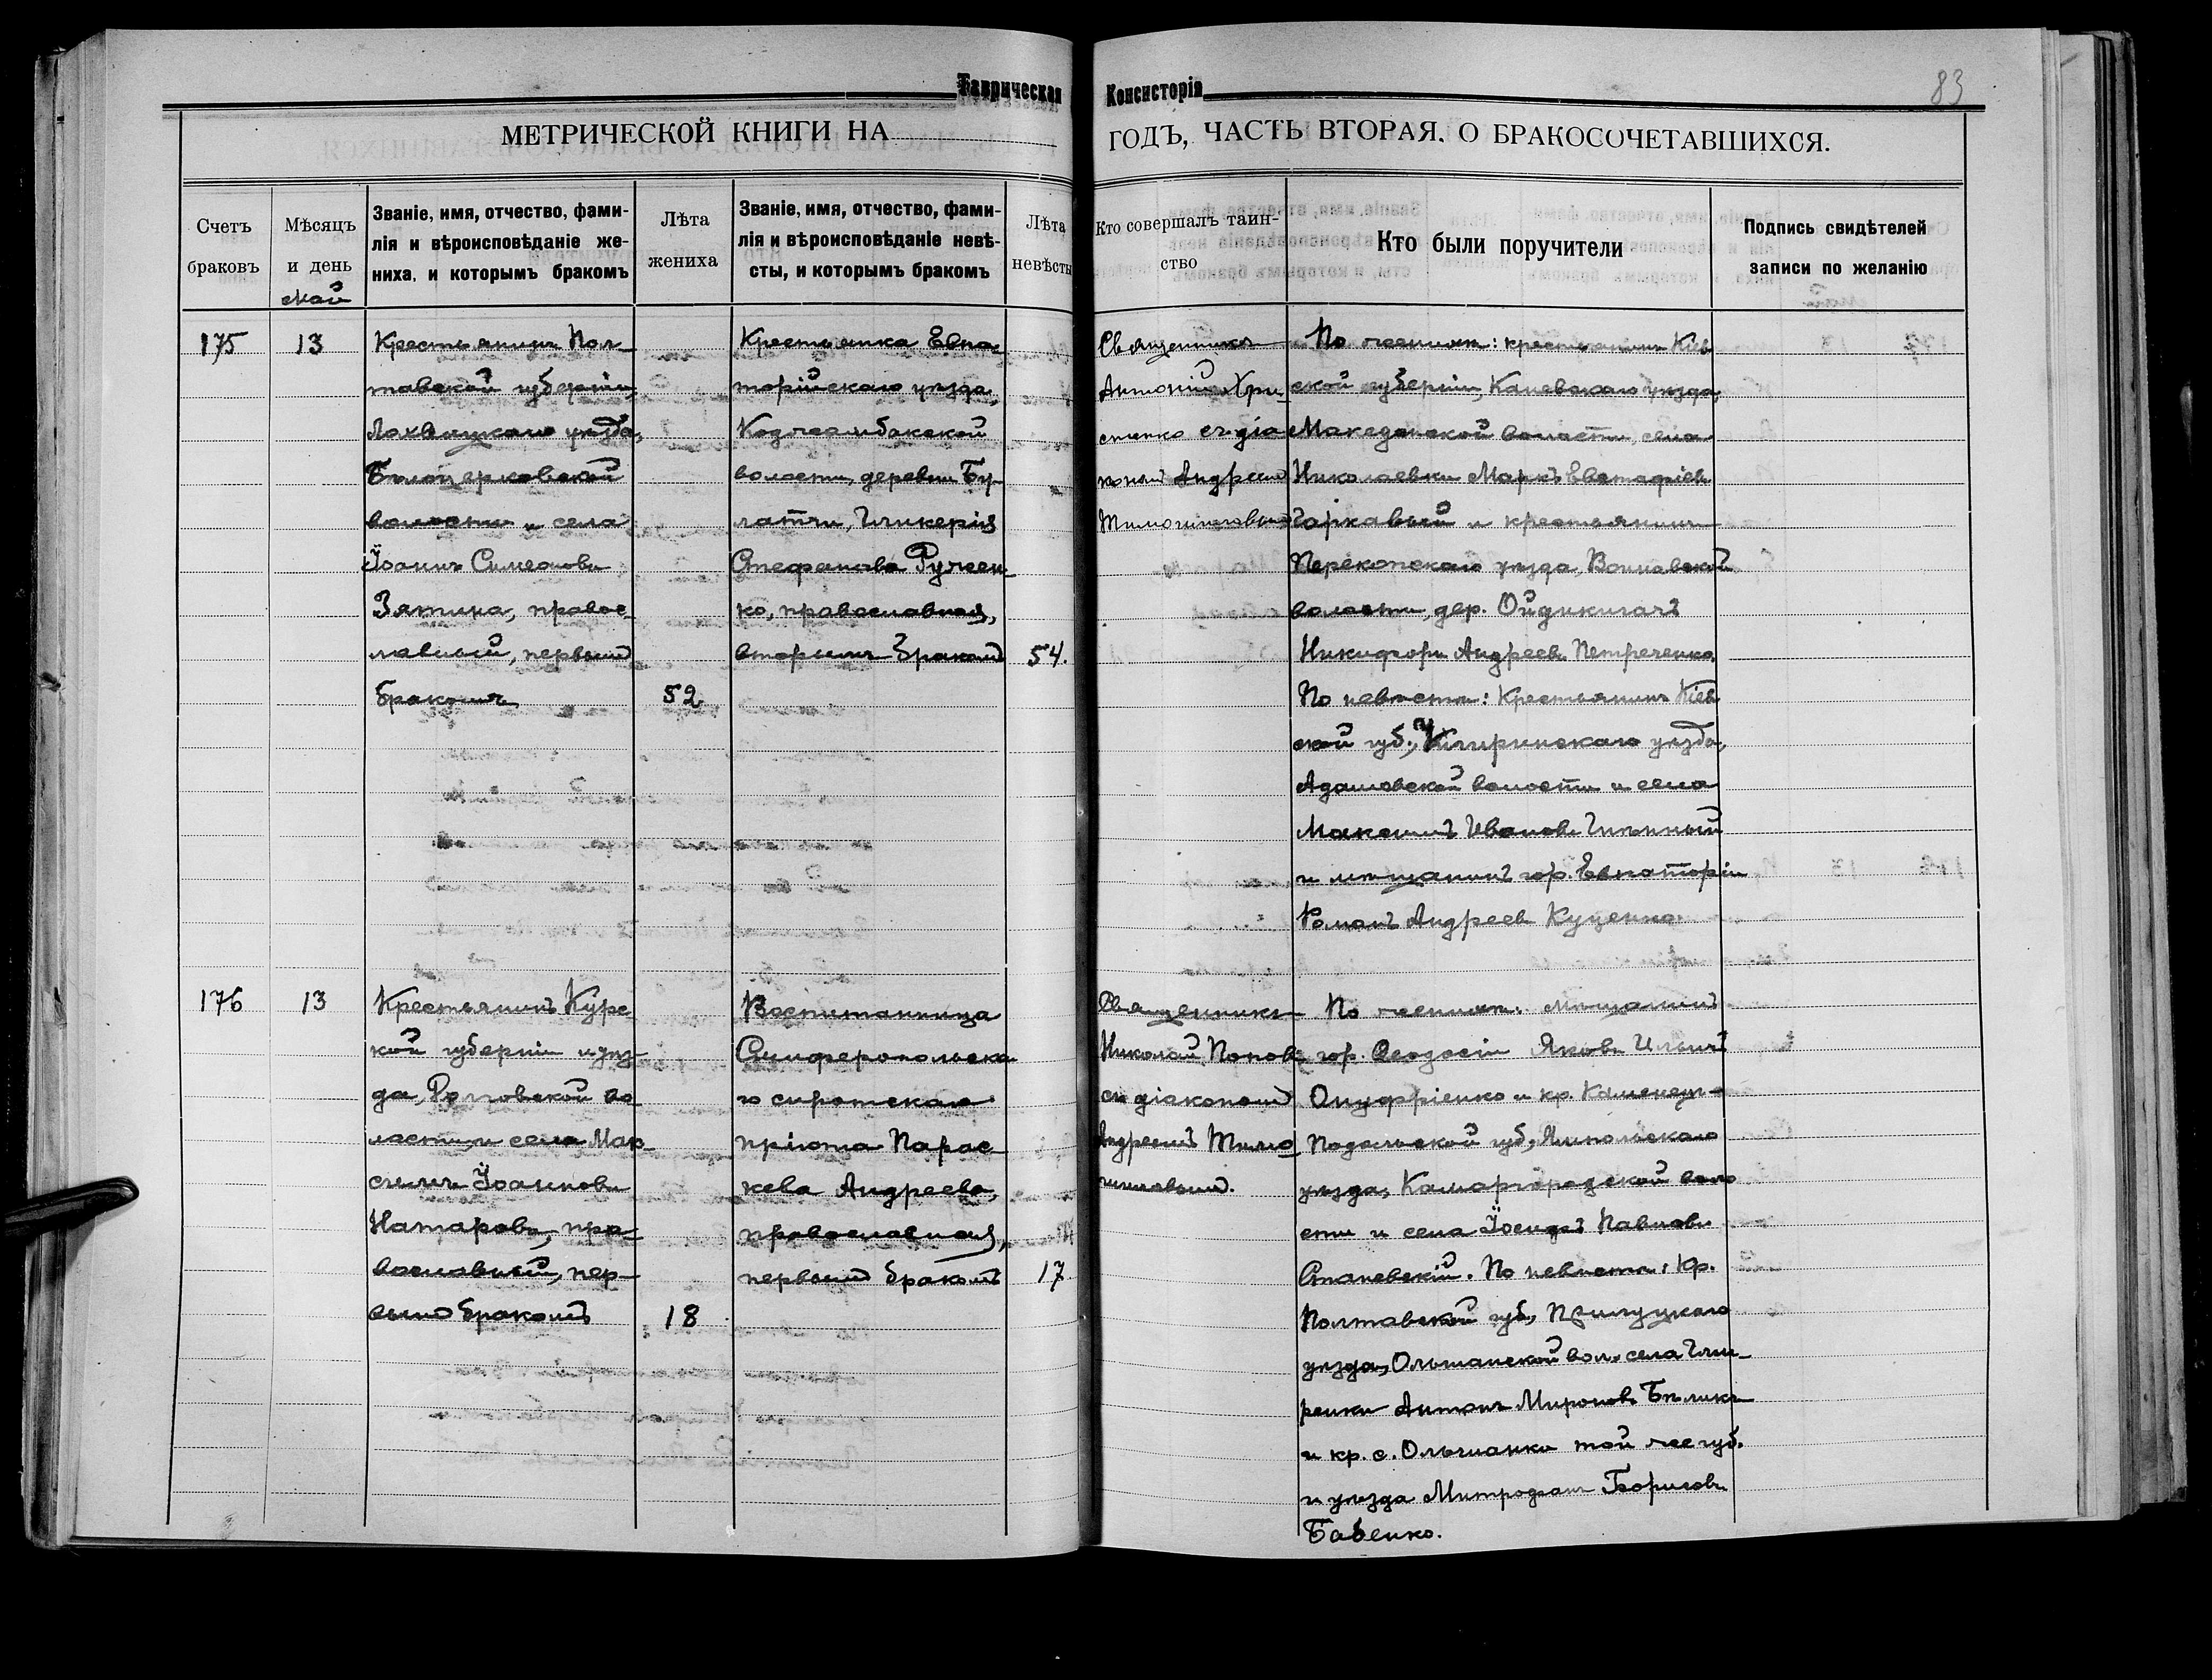 Таврическая Консисторія
83
МЕТРИЧЕСКОЙ КНИГИ НА
ГОДЪ, ЧАСТЬ ВТОРАЯ, О БРАКОСОЧЕТАВШИХСЯ.
Счетъ
браковъ
Мѣсяцъ
и день
Май
Званіе, имя, отчество, фами-
лія и вѣроисповѣданіе же-
ниха, и которымъ бракомъ
Лѣта
жениха
Званіе, имя, отчество, фами-
лія и вѣроисповѣданіе невѣ-
сты, и которымъ бракомъ
Лѣта
невѣсты
Кто совершалъ таин-
ство
Кто были поручители
Подпись свидѣтелей
записи по желанію
175
13
Крестьянинъ Пол-
тавской губерніи,
Лохвицкаго уѣзда,
Бѣлоцерковской
волости и села
Іоаннъ Симеоновъ
Зятина, правос-
лавный, первымъ
бракомъ
52
Крестьянка Евпа-
торійскаго уѣзда,
Коджамбакской
волости, деревни Бу-
латчи, Гликерія
Стефанова Ручен-
ко, православная,
вторымъ бракомъ
54.
Священникъ
Антоній Хри-
стенко съ діа
кономъ Андреемъ
По женихѣ: крестьянинъ Кіев
ской губерніи, Каневскаго уѣзда,
Македонской волости, села
Николаевки Маркъ Евстафіевъ
Гаркавый и крестьянинъ
Перекопскаго уѣзда, Воинской
волости, дер. Ойдикигачъ
Никифоръ Андреевъ Петреченко.
По невѣстѣ: Крестьянинъ Кіев
ской губ., Чигиринскаго уѣзда,
Адамовской волости и села
Максимъ Ивановъ
и мѣщанинъ гор. Евпаторіи
Романъ Андреевъ Куценко.
176
13
Крестьянинъ Курс
кой губерніи и уѣз-
да, Роговской во
лости, и села Мак-
симъ Іоанновъ
Натаровъ, пра-
вославный, пер-
вымъ бракомъ
18
Воспитанница
Симферопольска
го сиротскаго
пріюта Парас-
кева Андреева,
православная,
первымъ бракомъ
17
Священникъ
Николай Поповъ
съ діакономъ
Андреемъ Тимо
По женихѣ: мѣщанинъ
гор. Ѳеодосіи Яковъ Ильичъ
Онуфріенко и кр. Каменецъ-
Подольской губ., Ямпольскаго
уѣзда, Камаргородской воло
сти и села Іосифъ Павловъ
Станевскій. По невѣстѣ: Кр.
Полтавской губ., Прилуцкаго
уѣзда, Ольшанской вол. села Гли-
Антонъ Мироновъ Бѣликъ
и кр. с. Ольшанки той же губ.
и уѣзда Митрофанъ Борисовъ
Бабенко.